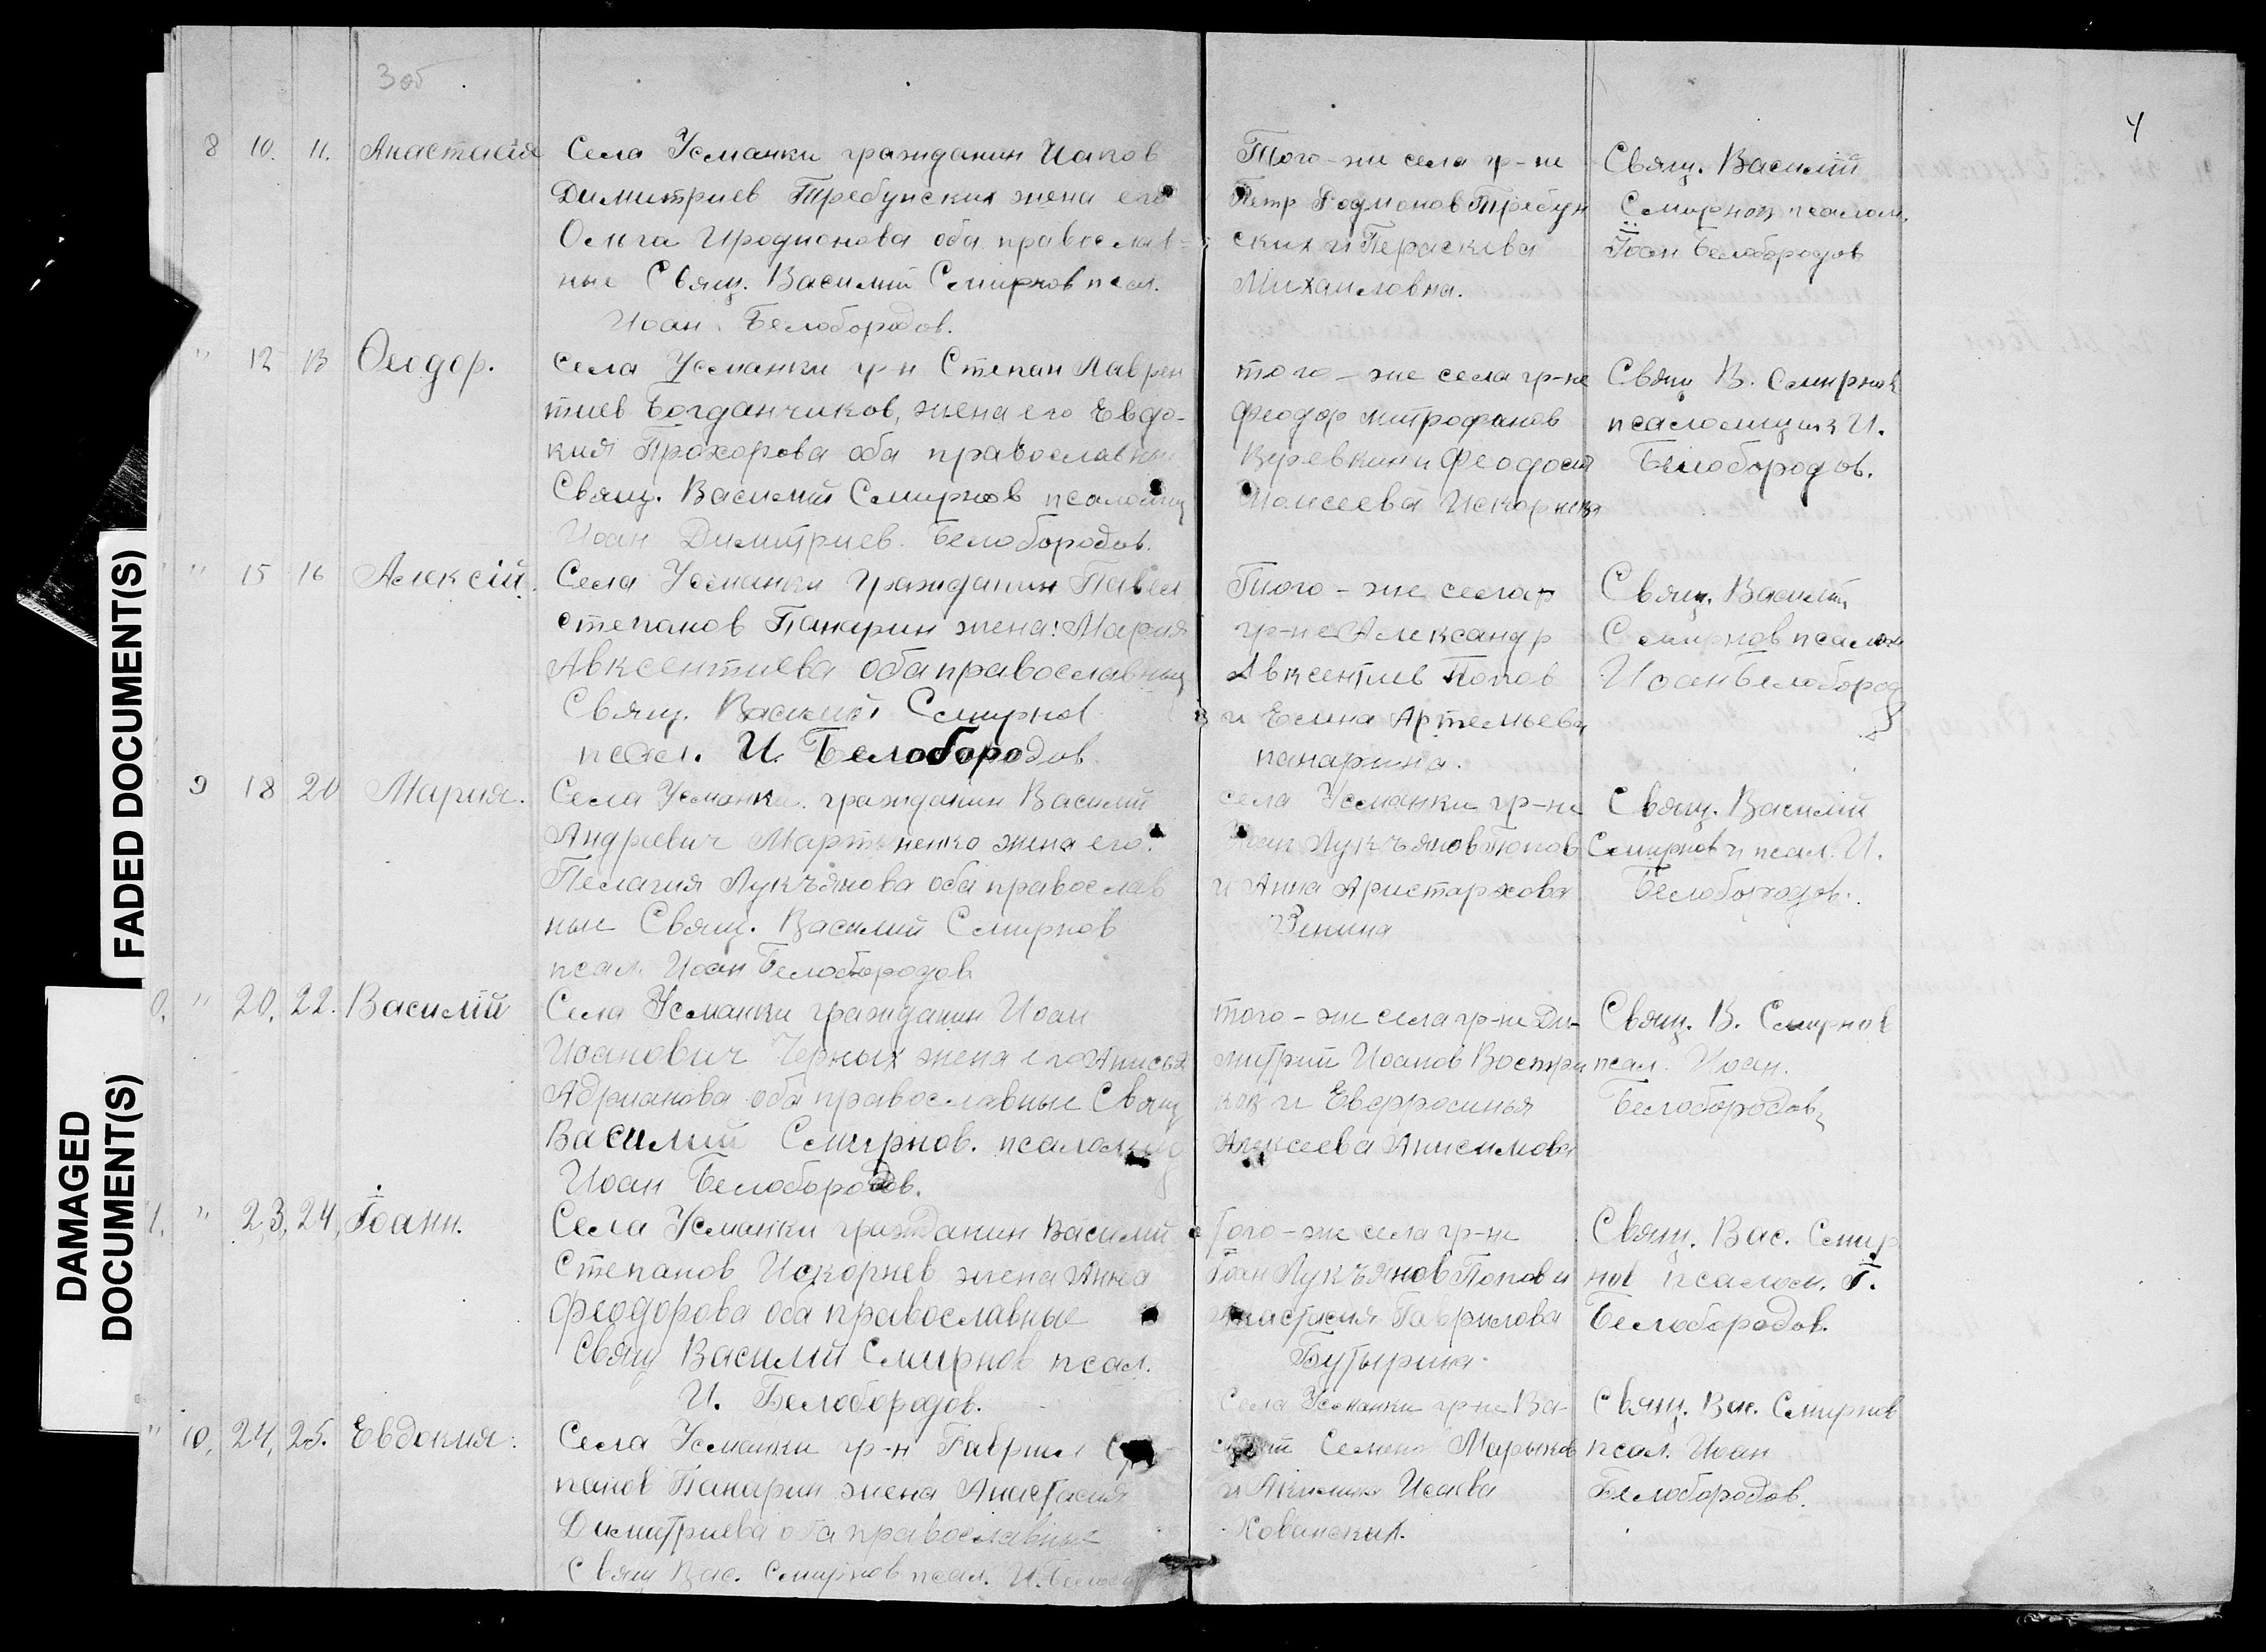 3 об
4
8 10. 11. Анастасія
Села Усманки гражданин Иаков
Димитриев Требунских жена его
Ольга Иродионова оба православ-
ные Свящ. Василий Смирнов псал.
Иоан Белобородов.
Того-же села гр-не
Петр Родионов Требун
ских и Параскева
Михаиловна.
Свящ. Василий
Смирнов псалом.
Іоан Белобородов
" 12 13 Ѳеодор.
Села Усманки гр-н Степан Лаврен
тиев Богданчиков, жена его Евдо-
кия Прохорова оба православны
Свящ. Василий Смирнов псаломщ
Иоан Димитриев Белобородов.
того-же села гр-не
Феодор Митрофанов
Веревкин и Феодосия
Моисеева Искорнева
Свящ В. Смирнов
псаломщик И.
Белобородов.
" 15 16 Алексій.
Села Усманки Гражданин Павел
Степанов Панарин жена: Мария
Авксентиева оба православныи
Свящ. Василий Смирнов
псал. И. Белобородов
Того-же села
гр-не Александр
Авксентиев Попов
и Елена Артемьева
Панарина.
Свящ. Василий
Смирнов псалом
Иоан Белобород
9 18 20 Мария.
Села Усманки гражданин Василий
Андреевич Мартыненко жена его:
Пелагия Лукъянова оба православ
ные Свящ. Василий Смирнов
псал. Иоан Белобородов
села Усманки гр-не
Иоан Лукъянов Попов
и Анна Аристархова
Зенина
Свящ. Василий
Смирнов и псал. И.
Белобородов.
0. " 20. 22. Василій
Села Усманки гражданин Иоан
Иоанович Черных жена его Анисья
Адрианова оба православные Свящ
Василий Смирнов. псаломщ
Иоан Белобородов.
того-же села гр-не Ди-
митрий Иоанов Вострик
ков и Евфросинья
Алексеева Анисимова
Свящ. В. Смирнов
псал. Иоан.
Белобородов
1. " 23, 24, Іоанн.
Села Усманки гражданин Василий
Степанов Искорнев жена Анна
Феодорова оба православные
Свящ Василий Смирнов псал.
И. Белобородов.
Того-же села гр-не
Іоан Лукъянов Попов и
Анастасия Гаврилова
Бутырина.
Свящ. Вас. Смир
нов псалом. І.
Белобородов.
" 10, 24, 25. Евдокия.
Села Усманки гр-н Гавриил С
панов Панарин жена Анастасия
Димитриева оба православные
Свящ Вас. Смирнов псал. И. Белоб
Села Усманки гр-не Ва-
силий Семенов Марыков
и Акилина Исаева
Хованских.
Свящ. Вас. Смирнов
псал. Иоан
Белобородов.
FADED DOCUMENT(S)
DAMAGED
DOCUMENT(S)